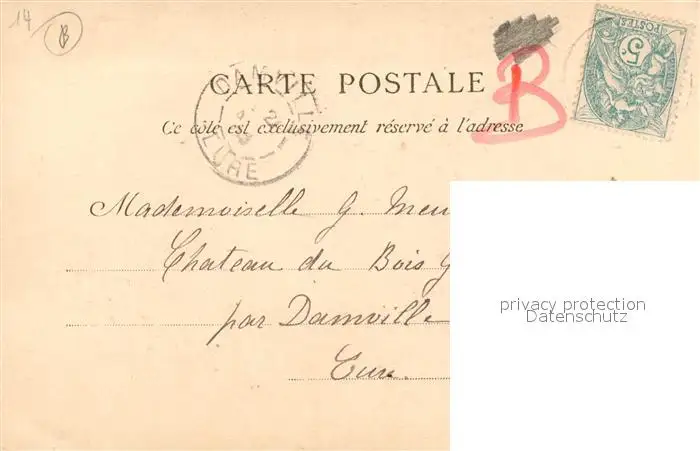 14
B
CARTE POSTALE
B
POSTES
5c
Ce côté est exclusivement réservé à l'adresse
DAMVILLE
EURE
Mademoiselle G. Meu
Chateau du Bois G
par Damville
Eure.
privacy protection
Datenschutz